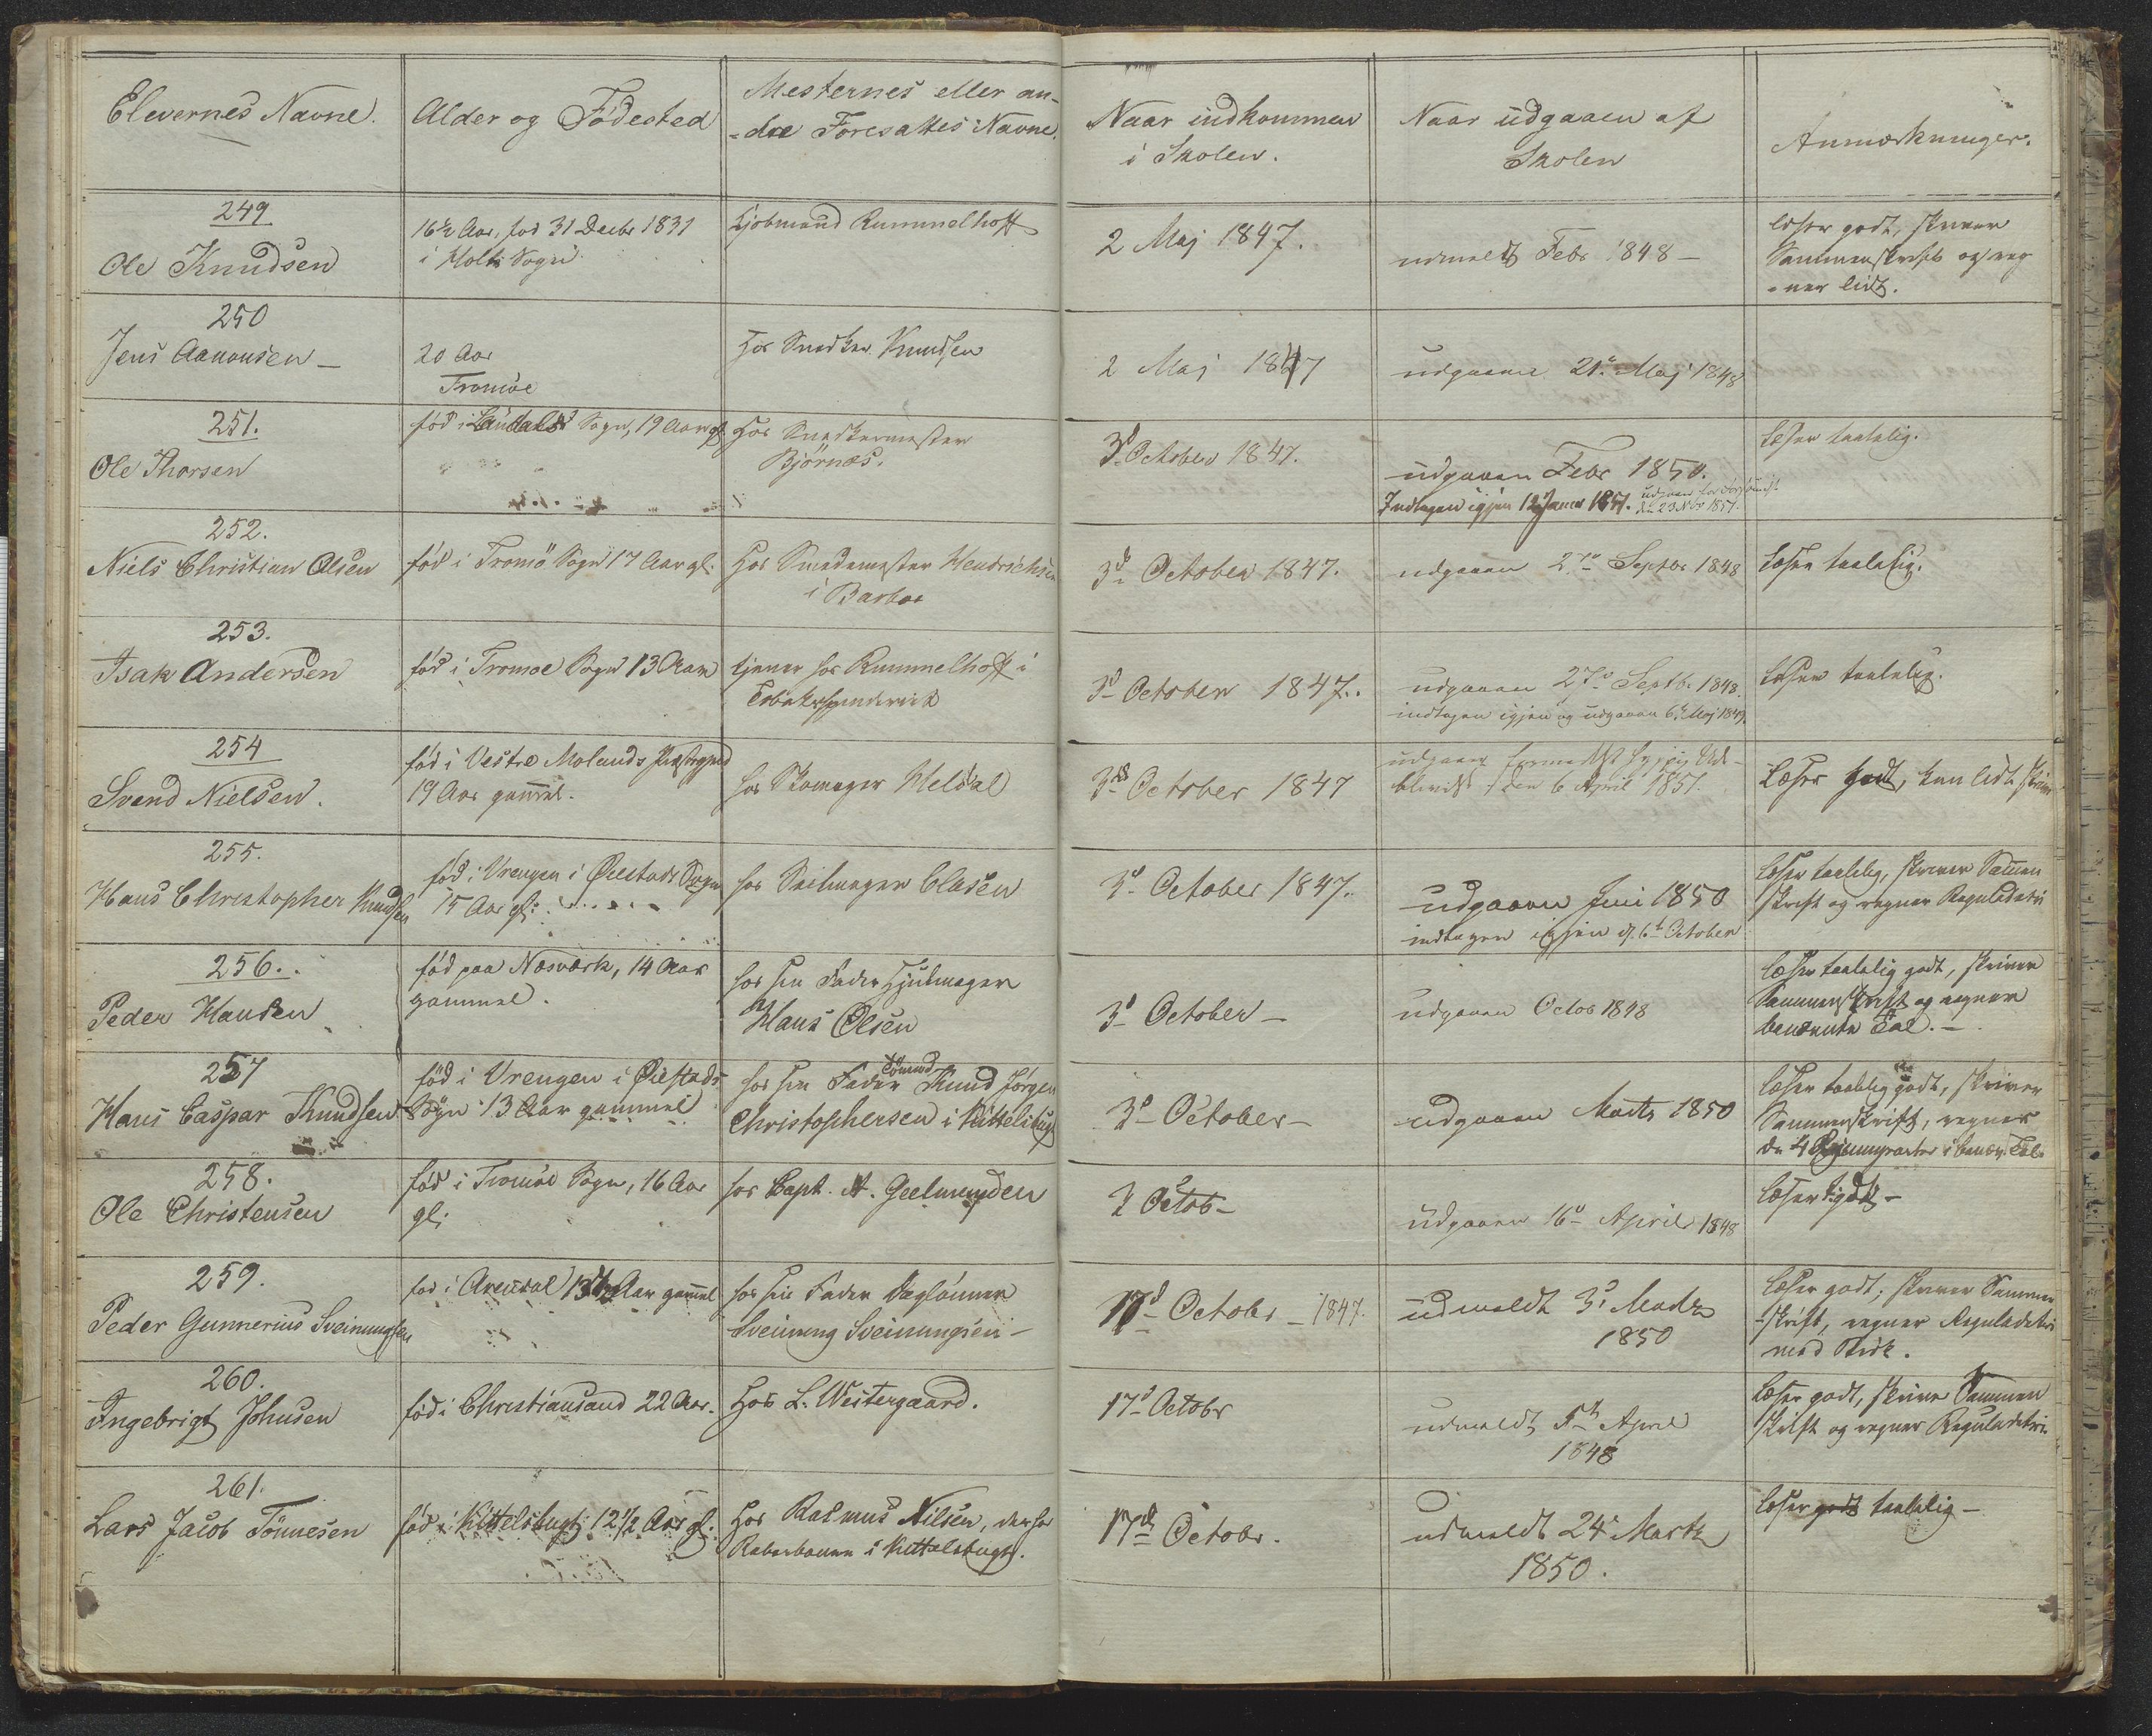 Elevernes Navne.
Alder og Födested
Mesternes eller an-
-dre Foresattes Navne.
Naar indkommen
i Skolen.
Naar udgaaen af
Skolen
Anmærkninger.
249
Ole Knudsen
16½ Aar, fød 31 Decbr 1831
i Holts Sogn
Kjøbmand Rummelhoff
2 Maj 1847.
udmeldt Febr 1848 —
læser godt, skriver
Sammenskrift og reg
-ner lidt.
250
Jens Aanonsen —
20 Aar
Tromöe
Hos Snedker Knudsen
2 Maj 1847
udgaaen 21de Maj 1848
251.
Ole Thorsen
fød i Landals Sogn, 19 Aar gl.
Hos Snedkermester
Björnæs.
3d October 1847.
udgaaen Febr 1850.
Indtagen igjen 12 Januar 1851.
d. 23 Nbr 1851.
læser taalelig.
252.
Niels Christian Olsen
fød i Tromö Sogn 17 Aar gl.
Hos Smedemester Hendrichsen
i Barboe
3d October 1847.
udgaaen 27de Septbr 1848
læser taalelig.
253.
Isak Andersen
fød i Tromøe Sogn 13 Aar
tjener hos Rummelhoff i
Tobaksspinderiet
3d October 1847.
udgaaen 27de Septb. 1848.
indtagen igjen og udgaaen 6te Maj 1849.
læser taalelig.
254
Svend Nielsen.
fød i Vestre Molands Præstegjeld
19 Aar gammel.
hos Skomager Meldal
3die October 1847
udgaaen formedelst hyppig Ud-
blivelse den 6 April 1851.
Læser godt, kan lidt skrive
255.
Hans Christopher Knudsen
fød i Vrengen i Øiestads Sogn
15 Aar gl.
hos Seilmager Clasen
3d October 1847.
udgaaen Juni 1850
indtagen igjen d. 6te October
læser taalelig, skriver Sammen
skrift og regner Reguladetri
256.
Peder Hansen
fød paa Næsværk, 14 Aar
gammel.
hos sin Fader Hjulmager
Hans Olsen
3d October —
udgaaen Octob 1848
læser taalelig godt, skriver
Sammenskrift og regner
benævnte Tal. —
257
Hans Caspar Knudsen
född i Vrengen i Øiestads
Sogn 13 Aar gammel
hos sin Fader Tømmerd Knud Jörgen
Christophersen i Kittelsbugt
3d October —
udgaaen Marts 1850
læser taalelig godt, skriver
Sammenskrift, regner
de 4 Regningsarter i benævn. Tal.
258.
Ole Christensen
fød i Tromöe Sogn, 16 Aar
gl.
hos Capt. A. Geelmuyden
3 Octob —
udgaaen 16de April 1848
læser godt —
259.
Peder Gunnerius Sveinungsen
fød i Arendal 13½ Aar gammel
hos sin Fader Daglönner
Sveinung Sveinungsen —
17d Octobr — 1847.
udmeldt 3d Marts
1850
læser godt, skriver Sammen
-skrift, regner Reguladetri
med Brök.
260.
Ingebrigt Johnsen
fød i Christiansand 22 Aar.
Hos L. Westergaard.
17d Octobr
udmeldt 5te April
1848
læser godt, skriver Sammen
skrift og regner Reguladetri.
261.
Lars Jacob Tönnesen
fød i Kittelsbugt 12½ Aar gl.
Hos Rasmus Nilsen, der har
Reberbanen i Kittelsbugt.
17de Octobr.
udmeldt 24d Marts
1850.
læser godt taalelig —